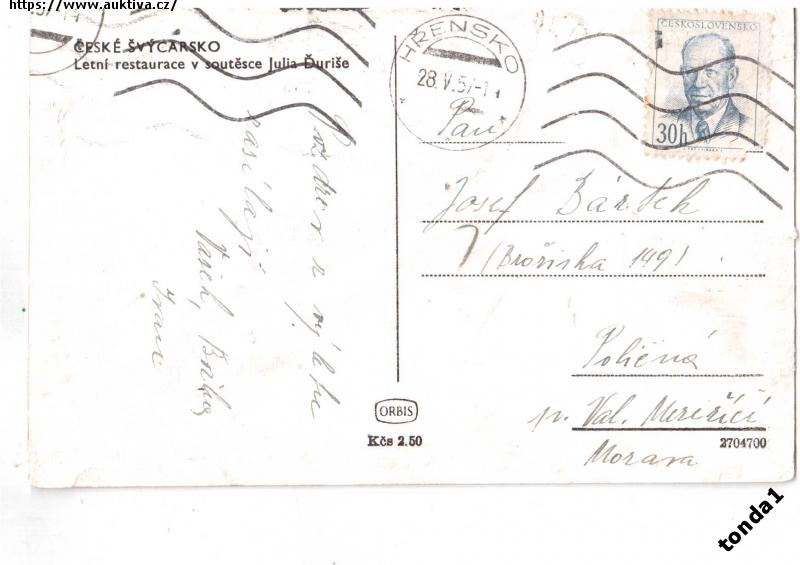 https://www.auktiva.cz/
57-1
ČESKÉ ŠVÝCARSKO
Letní restaurace v soutěsce Julia Ďuriše
HŘENSKO
28.V.57-11
ČESKOSLOVENSKO
30h
Pan
Josef Bártek
149)
Poličná
p. Val. Meziříčí
Morava
Pozdrav z výletu
zasílají
Ivan
ORBIS
Kčs 2.50
2704700
tonda1